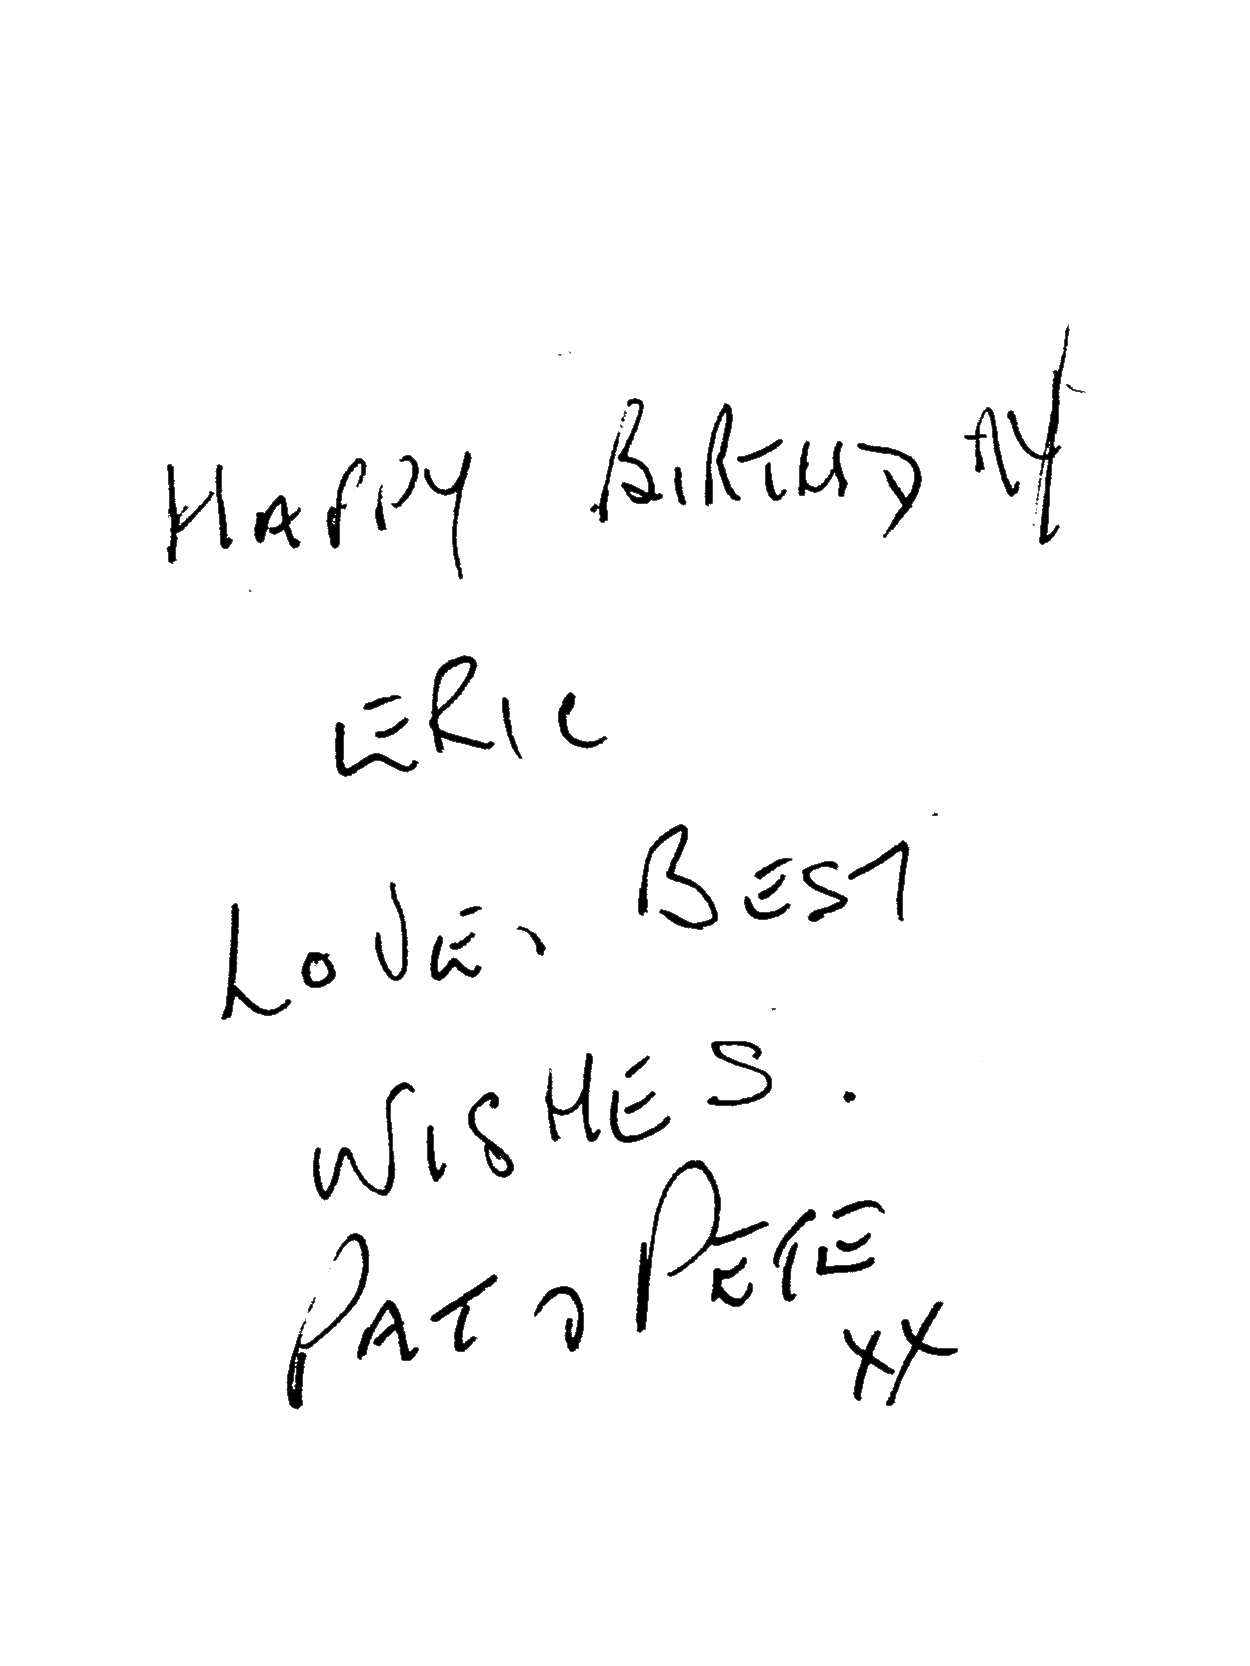 HAPPY BIRTHDAY
ERIC
LOVE, BEST
WISHES.
PAT PETE
xx